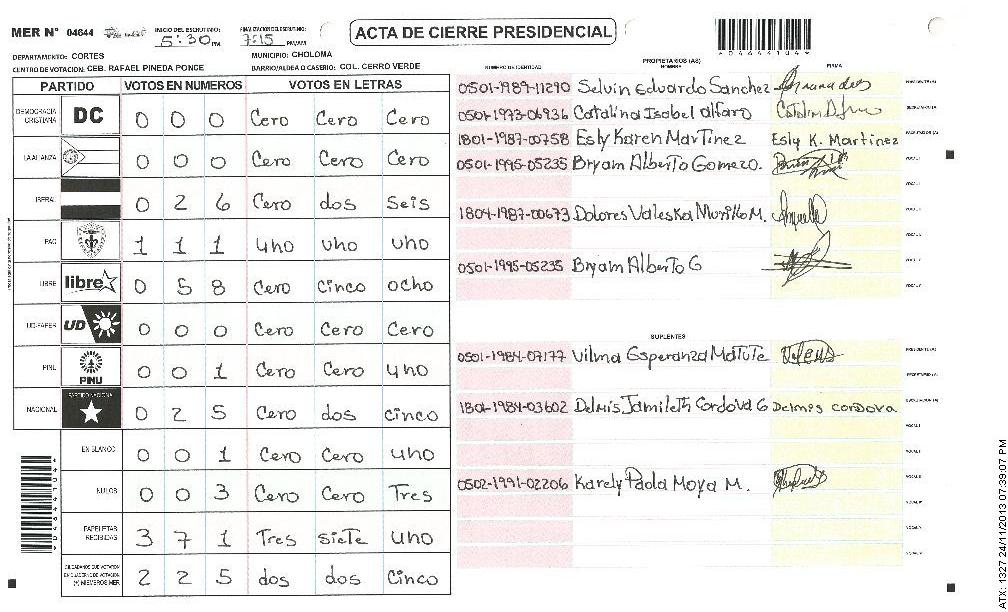 MER N° 04644
INICIO DEL ESCRUTINIO: 5:30 PM
FINALIZACION DEL ESCRUTINIO: 7:15 PM/AM
ACTA DE CIERRE PRESIDENCIAL
04644104
DEPARTAMENTO: CORTES
MUNICIPIO: CHOLOMA
CENTRO DE VOTACION: CEB. RAFAEL PINEDA PONCE
BARRIO/ALDEA O CASERIO: COL. CERRO VERDE
PARTIDO VOTOS EN NUMEROS VOTOS EN LETRAS
DEMOCRACIA CRISTIANA DC 0 0 0 Cero Cero Cero
LA ALIANZA 0 0 0 Cero Cero Cero
LIBERAL 0 2 6 Cero dos Seis
PAC 1 1 1 uno uno uno
LIBRE libre 0 5 8 Cero Cinco ocho
UD-FAPER UD 0 0 0 Cero Cero Cero
PINU PINU 0 0 1 Cero Cero uno
NACIONAL PARTIDO NACIONAL 0 2 5 Cero dos cinco
EN BLANCO 0 0 1 Cero Cero uno
NULOS 0 0 3 Cero Cero Tres
PAPELETAS RECIBIDAS 3 7 1 Tres siete uno
CIUDADANOS QUE VOTARON EN CUADERNO DE VOTACION (+) MIEMBROS MER 2 2 5 dos dos Cinco
PROPIETARIOS (AS)
NUMERO DE IDENTIDAD NOMBRE FIRMA
0501-1989-11290 Selvin Eduardo Sanchez PRESIDENTE (A)
0501-1973-06936 Catalina Isabel alfaro SECRETARIO (A)
1801-1987-00758 Esly Karen Martinez Esly K. Martinez ESCRUTADOR (A)
0501-1995-05235 Bryam Alberto Gomez O. VOCAL I
1804-1987-00673 Dolores Valeska Murillo M.
0501-1995-05235 Bryam Alberto G
SUPLENTES
0501-1984-07177 Vilma Esperanza Matute PRESIDENTE (A)
SECRETARIO (A)
1801-1984-03602 Delmis Jamileth Cordova G Delmis cordova ESCRUTADOR (A)
VOCAL I
0502-1991-02206 Karely Paola Moya M.
ATX: 1327 24/11/2013 07:39:07 PM